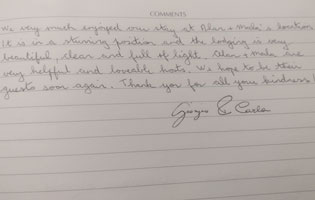 COMMENTS
We very much enjoyed our stay at Alan + Mala's location
It is in a stunning position and the lodging is very
beautiful, clean and full of light. Alan + Mala are
very helpful and loveable hosts. We hope to be their
guests soon again. Thank you for all your kindness!
Giorgio & Carla